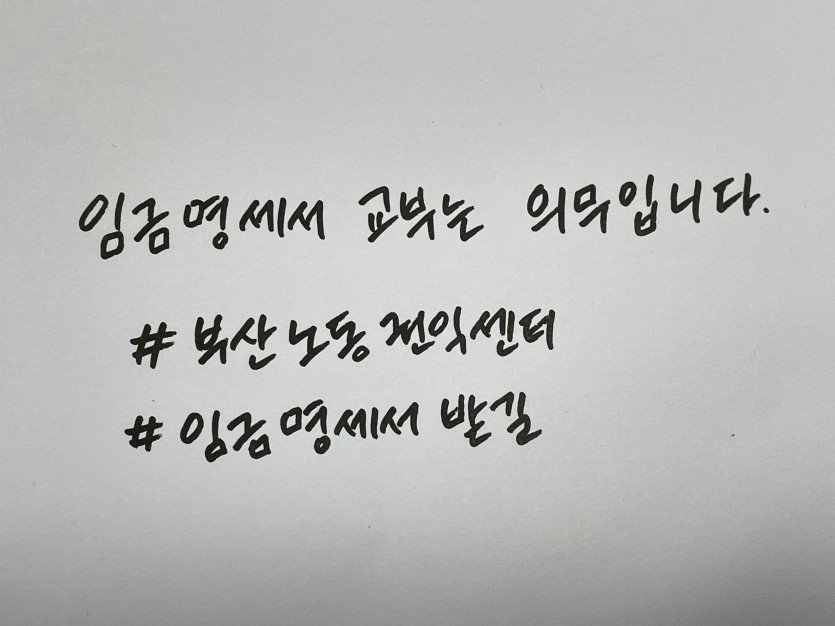 임금명세서 교부는 의무입니다.
#부산노동권익센터
#임금명세서 발길